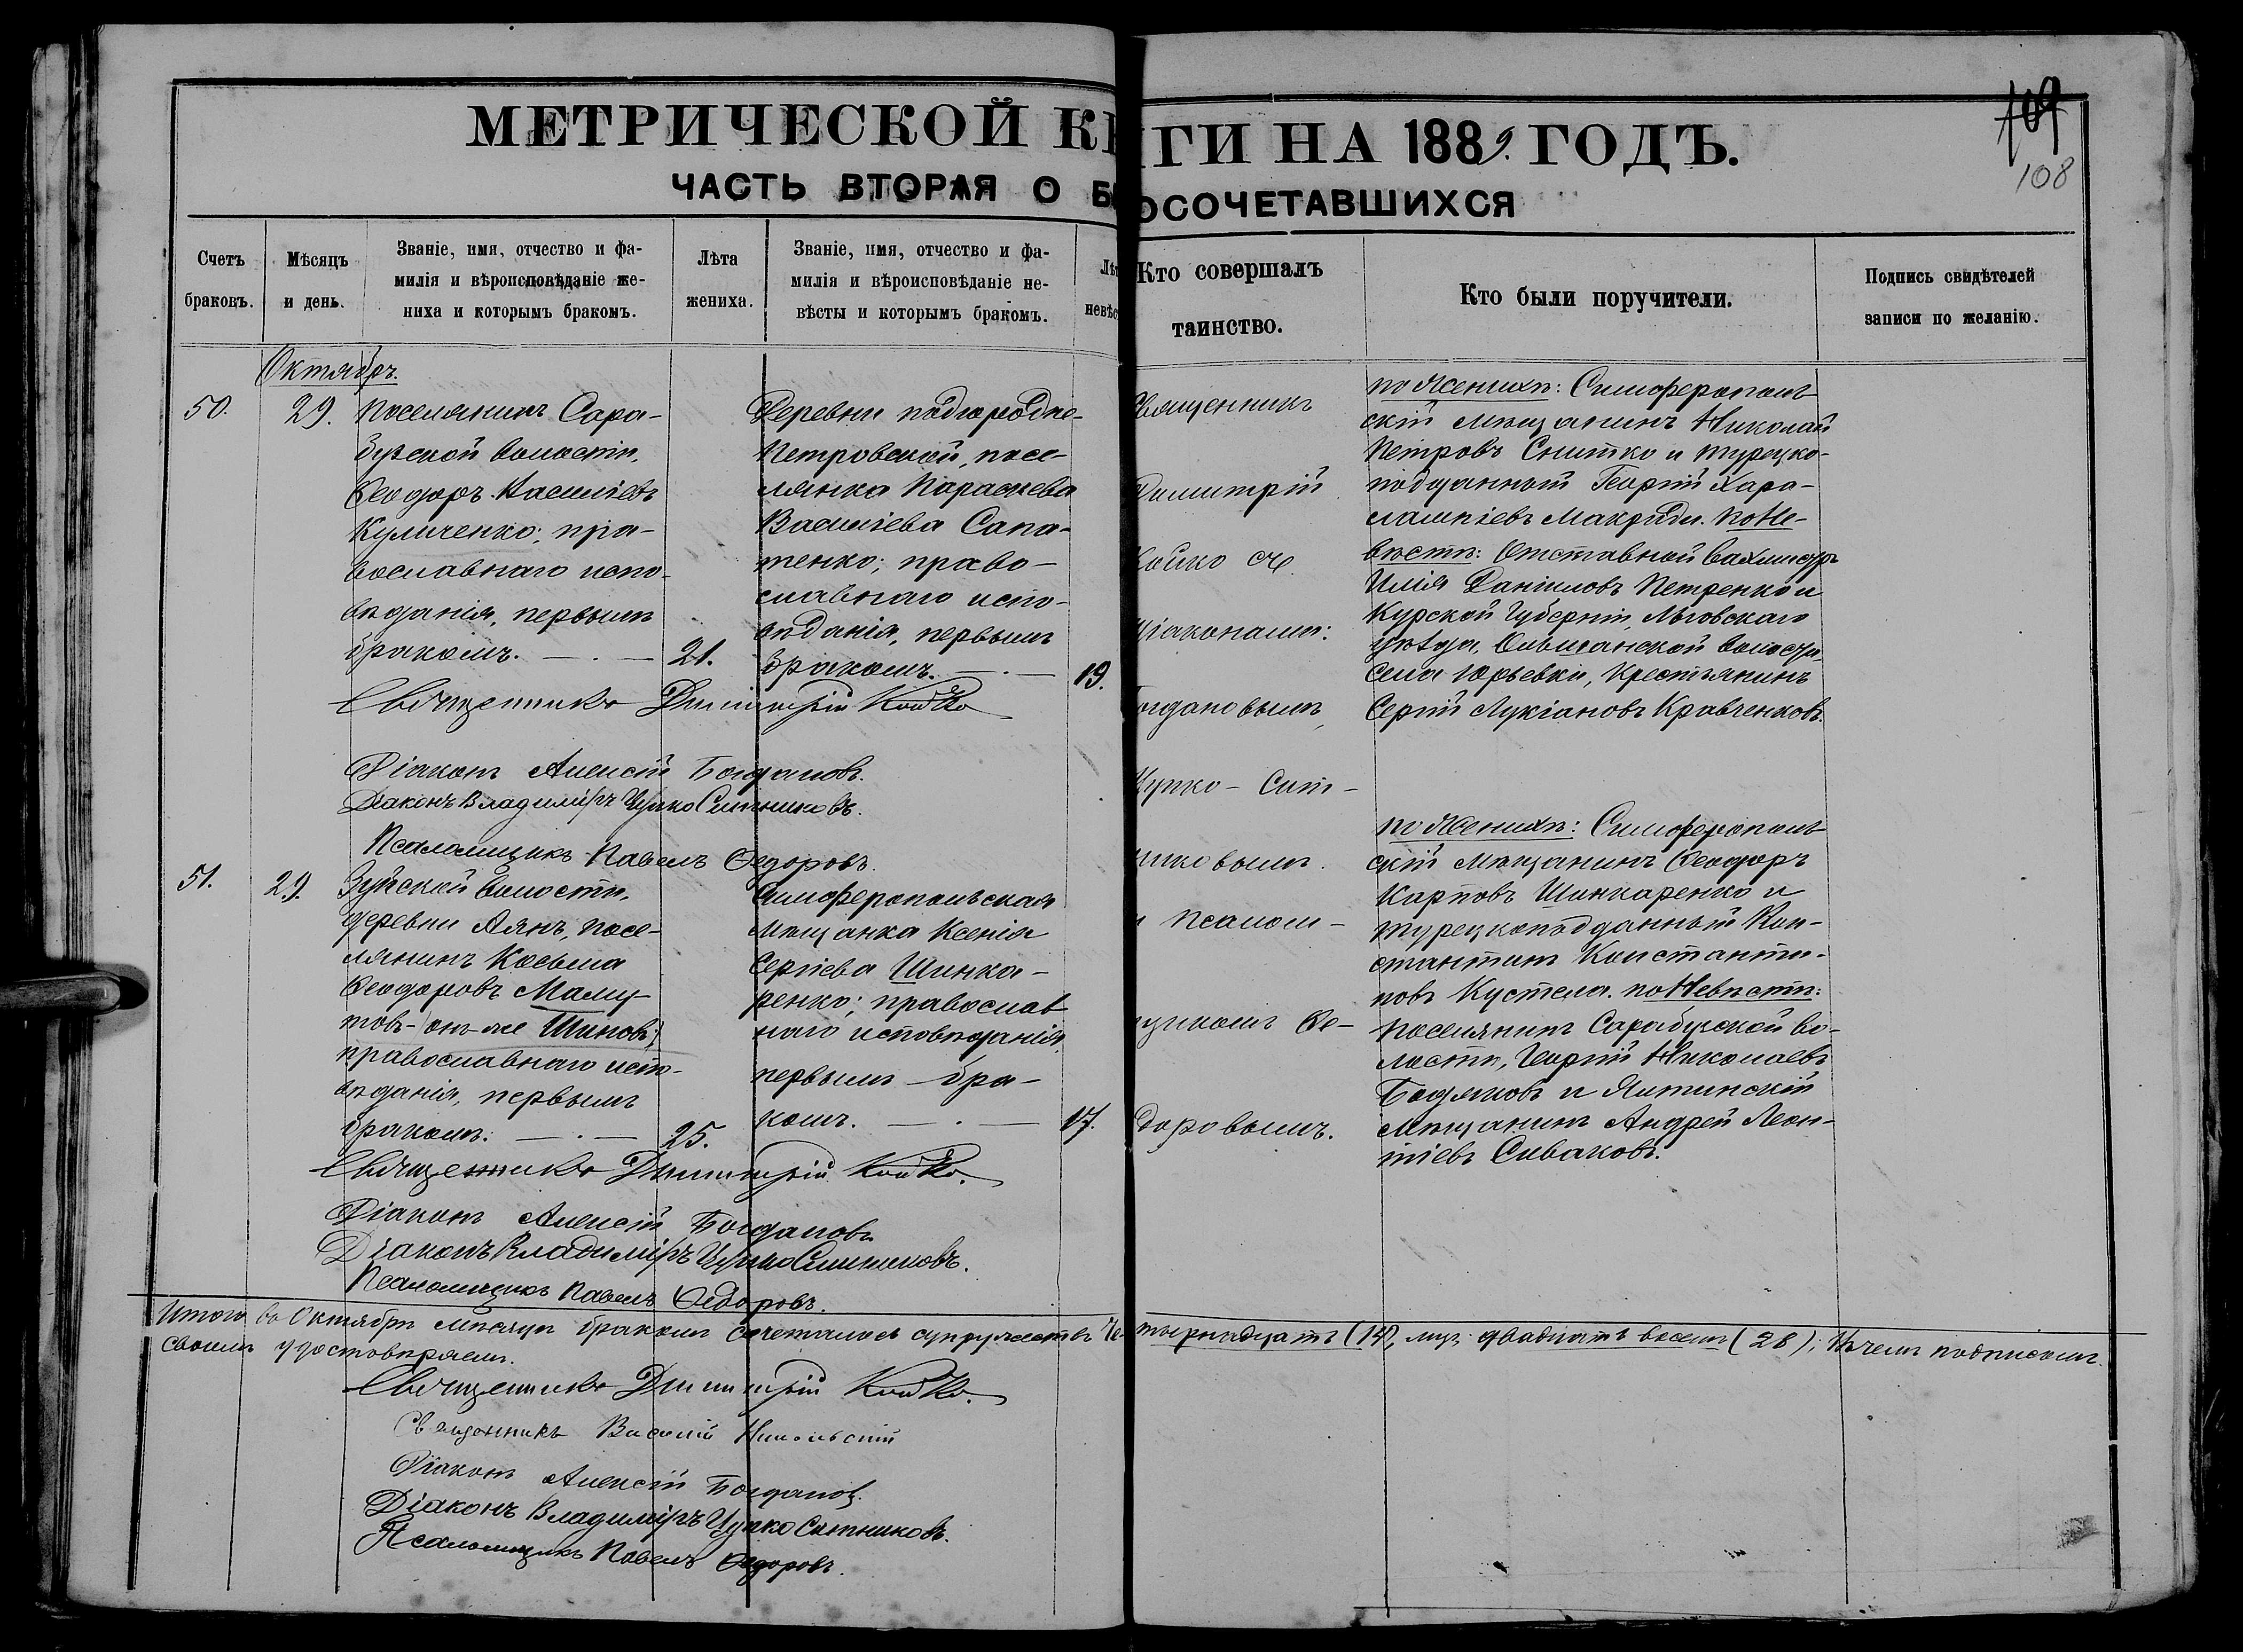 МЕТРИЧЕСКОЙ КНИГИ НА 1889. ГОДЪ.
109
108
ЧАСТЬ ВТОРАЯ О БРАКОСОЧЕТАВШИХСЯ
Счетъ
браковъ.
Мѣсяцъ
и день.
Званіе, имя, отчество и фа-
милія и вѣроисповѣданіе же-
ниха и которымъ бракомъ.
Лѣта
жениха.
Званіе, имя, отчество и фа-
милія и вѣроисповѣданіе не-
вѣсты и которымъ бракомъ.
Кто совершалъ
таинство.
Кто были поручители.
Подпись свидѣтелей
записи по желанію.
Октябрь.
50.
29.
Поселянинъ Сара-
бузской волости,
Ѳеодоръ Васильевъ
Куличенко; пра-
вославнаго испо-
вѣданія, первымъ
бракомъ.
21.
Деревни подгородне-
Петровской, посе-
лянка Параскева
Васильева Сапа-
тенко; право-
славнаго испо-
вѣданія, первымъ
бракомъ.
19.
Священникъ
Димитрій
Койко съ
Діаконами:
Богдановымъ,
Цупко - Сит-
никовымъ
и Псалом-
щикомъ Ѳе-
доровымъ.
по Женихѣ: Симферополь-
скій мѣщанинъ Николай
Петровъ Снитко и турецко-
подданный Георгій Хара-
лампіевъ Макриди. по Не-
вѣстѣ: Отставной вахмистръ
Илія Даніиловъ Петренко и
Курской Губерніи, Льговскаго
уѣзда, Ольшанской волости,
села Юрьевки, Крестьянинъ
Сергій Лукіановъ Кравченковъ.
Священникъ Димитрій Койко
Діаконъ Алексій Богдановъ.
Діаконъ Владиміръ Цупко Ситниковъ.
Псаломщикъ Павелъ Ѳедоровъ.
51.
29.
Зуйской волости,
деревни Аянъ, посе-
лянинъ Косьма
Ѳеодоровъ Маму-
товъ - (онъ-же Шиновъ)
православнаго испо-
вѣданія, первымъ
бракомъ.
25.
Симферопольская
мѣщанка Ксенія
Сергіева Шинка-
ренко; православ
наго исповѣданія,
первымъ бра-
комъ.
17.
по Женихѣ: Симферополь-
скій мѣщанинъ Ѳеодоръ
Карповъ Шинкаренко и
турецкоподданный Кон-
стантинъ Константи-
новъ Кустела. по Невѣстѣ:
поселянинъ Сарабузской во-
лости, Георгій Николаевъ
Бодяковъ и Ялтинскій
мѣщанинъ Андрей Леон-
тіевъ Сиваковъ.
Священникъ Димитрій Койко.
Діаконъ Алексій Богдановъ
Діаконъ Владиміръ Цупко Ситниковъ.
Псаломщикъ Павелъ Ѳедоровъ.
Итого въ Октябрѣ мѣсяцѣ бракомъ сочеталось супружествъ четырнадцать (14), лицъ двадцать восемь (28); въ чемъ подписомъ
своимъ удостовѣряемъ.
Священникъ Димитрій Койко.
Священникъ Василій Никольскій
Діаконъ Алексій Богдановъ.
Діаконъ Владиміръ Цупко Ситниковъ.
Псаломщикъ Павелъ Ѳедоровъ.